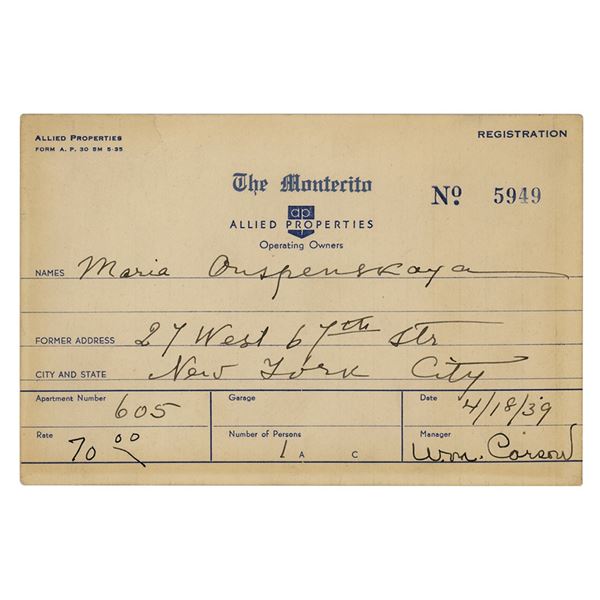 ALLIED PROPERTIES
FORM A. P. 30 5M 5-35
REGISTRATION
The Montecito
No. 5949
ap
ALLIED PROPERTIES
Operating Owners
NAMES Maria Ouspenskaya
FORMER ADDRESS 27 West 67th Str
CITY AND STATE New York City
Apartment Number 605
Garage
Date 4/18/39
Rate 70 00
Number of Persons 1 A C
Manager Wm. Carson